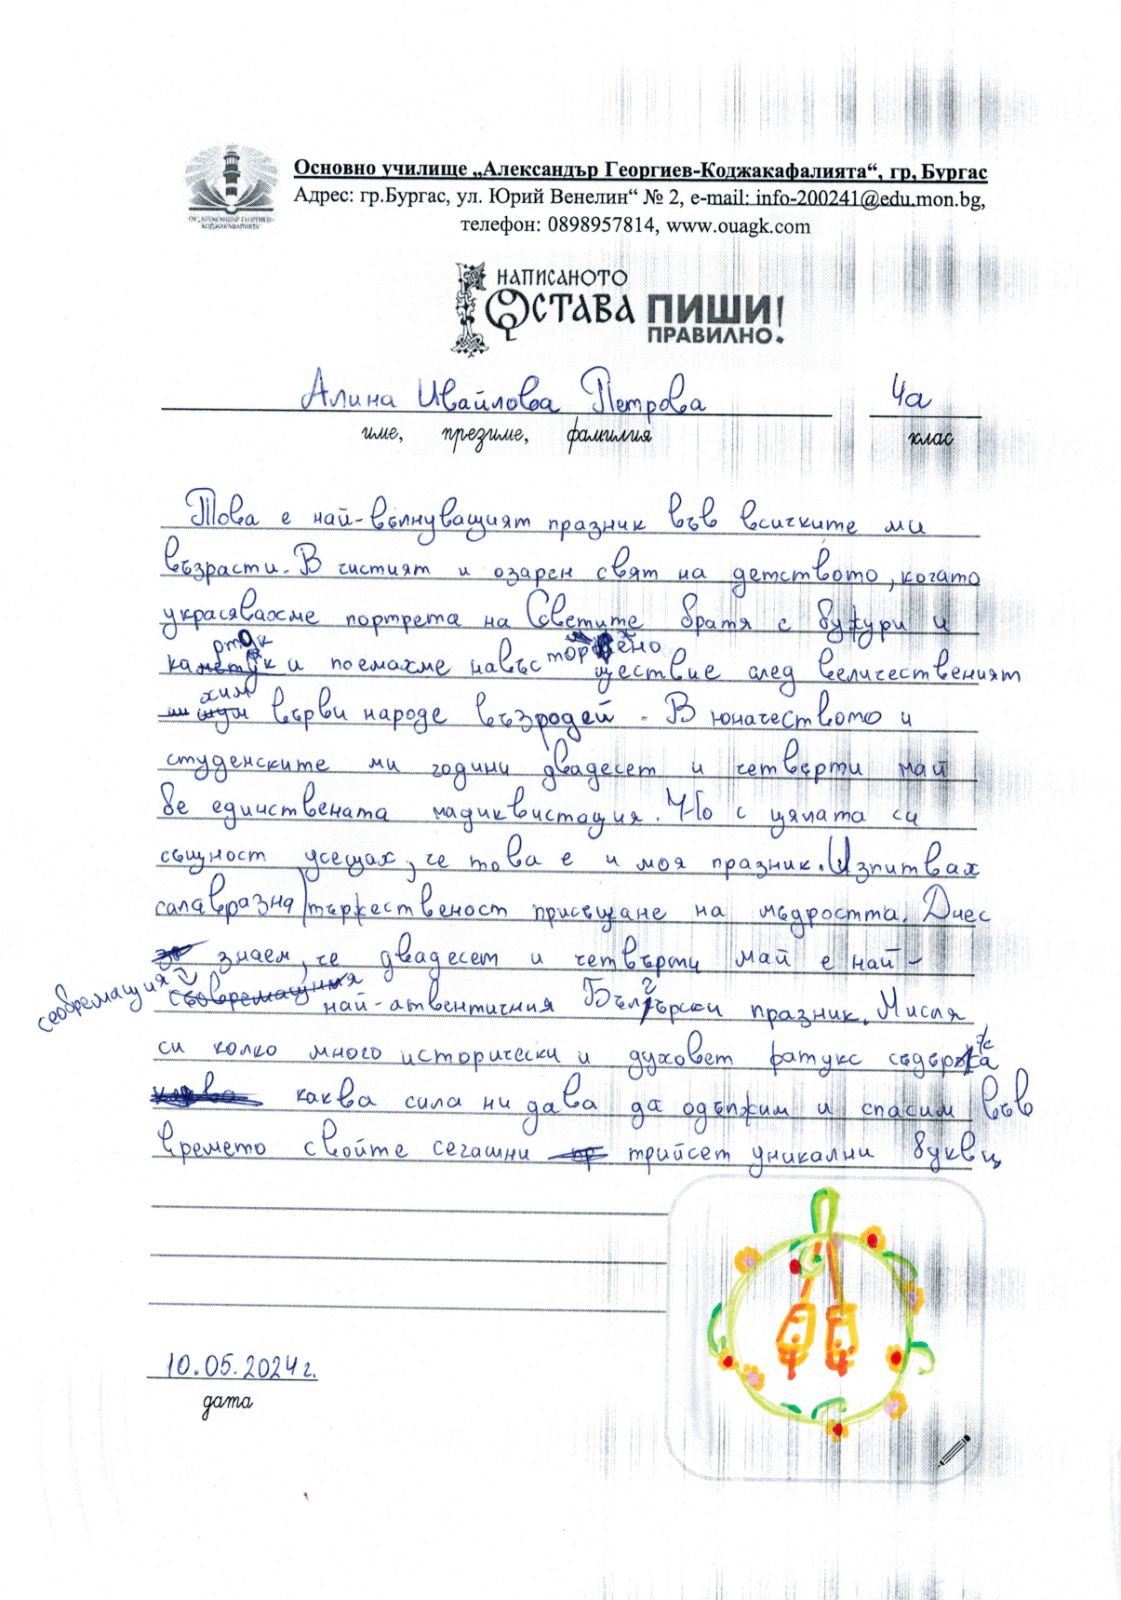 ОУ „АЛЕКСАНДЪР ГЕОРГИЕВ-
КОДЖАКАФАЛИЯТА“
Основно училище „Александър Георгиев-Коджакафалията“, гр, Бургас
Адрес: гр.Бургас, ул. Юрий Венелин“ № 2, e-mail: info-200241@edu.mon.bg,
телефон: 0898957814, www.ouagk.com
НАПИСАНОТО
ОСТАВА ПИШИ
ПРАВИЛНО!
Алина Ивайлова Петрова 4а
име, презиме, фамилия клас
Това е най-вълнуващият празник във всичките ми
възрасти. В чистият и озарен свят на детството, когато
украсявахме портрета на Светите братя с бужури и
и поемахме навъс шествие след величественият
химн върви народе възродей. В юначеството и
студенските ми години двадесет и четвърти май
бе единствената мадиквистация. Но с цялата си
същност усещах, че това е и моя празник. Изпитвах
салавразна тържественост присъщане на мъдростта. Днес
знаем, че двадесет и четвърти май е най-
сеовремация най-атвентичния Български празник. Мисля
си колко много исторически и духовет фатукс съдържа
каква сила ни дава да одължим и спасим във
времето свойте сегашни трийсет уникални букви
10.05.2024г.
дата